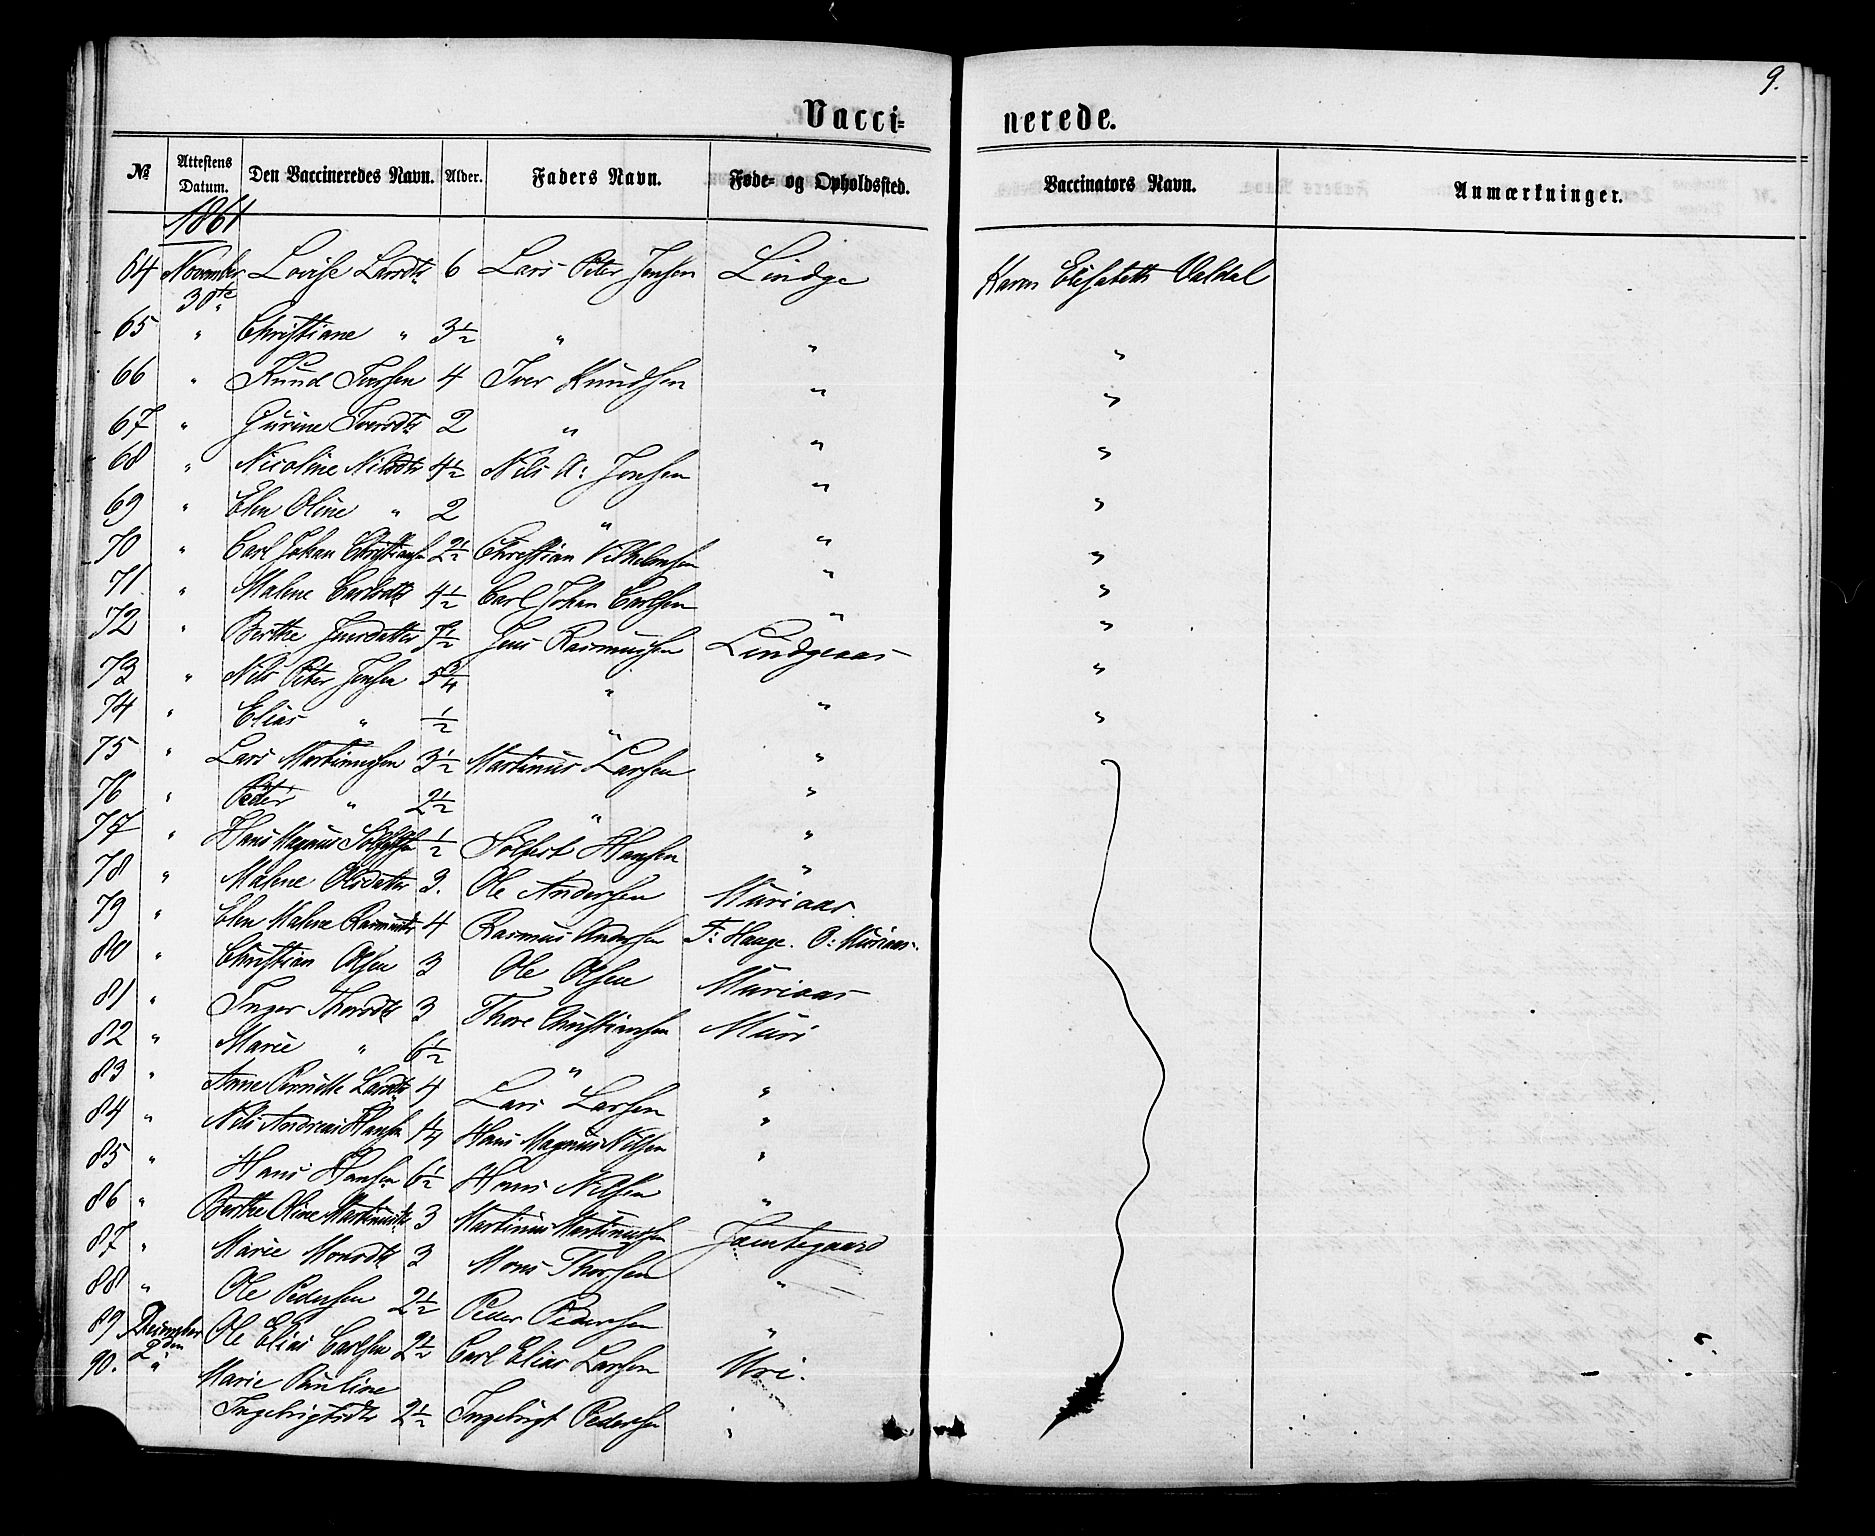 9.
Vacci= nerede.
№ Attestens Datum. Den Vaccineredes Navn. Alder. Faders Navn. Føde= og Opholdssted. Vaccinators Navn. Anmærkninger.
1861
64 November 30te Lovise Larsdtr 6 Lars Peter Jensen Lindge Karen Elisabeth Valdal
65 " Christiane " 3½ " " "
66 " Knud Iversen 4 Iver Knudsen " "
67 " Gurine Iversdtr 2 " " "
68 " Nicoline Nilsdtr 4½ Nils A: Jonsen " "
69 " Elen Oline " 2 " " "
70 " Carl Johan Christiansen 2½ Christian Vilhelmsen " "
71 " Malene Carlsdtr 4½ Carl Johan Carlsen " "
72 " Berthe Jensdatter ½ Jens Rasmussen Lindgeaas "
73 " Nils Peter Jensen 5¾ " " "
74 " Elias " ½ " "
75 " Lars Martinussen 3½ Martinus Larsen "
76 " Peder " 2½ " "
77 " Hans Magnus Solfestsen ½ Solfest Hansen "
78 " Malene Olsdatter 3. Ole Andersen Muriaas.
79 " Elen Malene Rasmusdtr 4 Rasmus Andersen F: Hauge. O: Muriaas.
80 " Christian Olsen 3 Ole Olsen Muriaas
81 " Inger Thorsdtr 3 Thore Christiansen Muri
82 " Marie " 6½ " "
83 " Anne Pernille Larsdtr 4 Lars Larsen "
84 " Nils Andreas Hansen ¼ Hans Magnus Nilsen "
85 " Hans Hansen 6½ Hans Nilsen "
86 " Berthe Oline Martinusdtr 3 Martinus Martinussen Jamtegaard
87 " Marie Monsdtr 3 Mons Thorsen "
88 " Ole Pedersen 2½ Peder Pedersen "
89 December 2den Ole Elias Carlsen 2½ Carl Elias Larsen Uri.
90. " Marie Pauline
Ingebrigtsdtr 2½ Ingebrigt Pedersen "